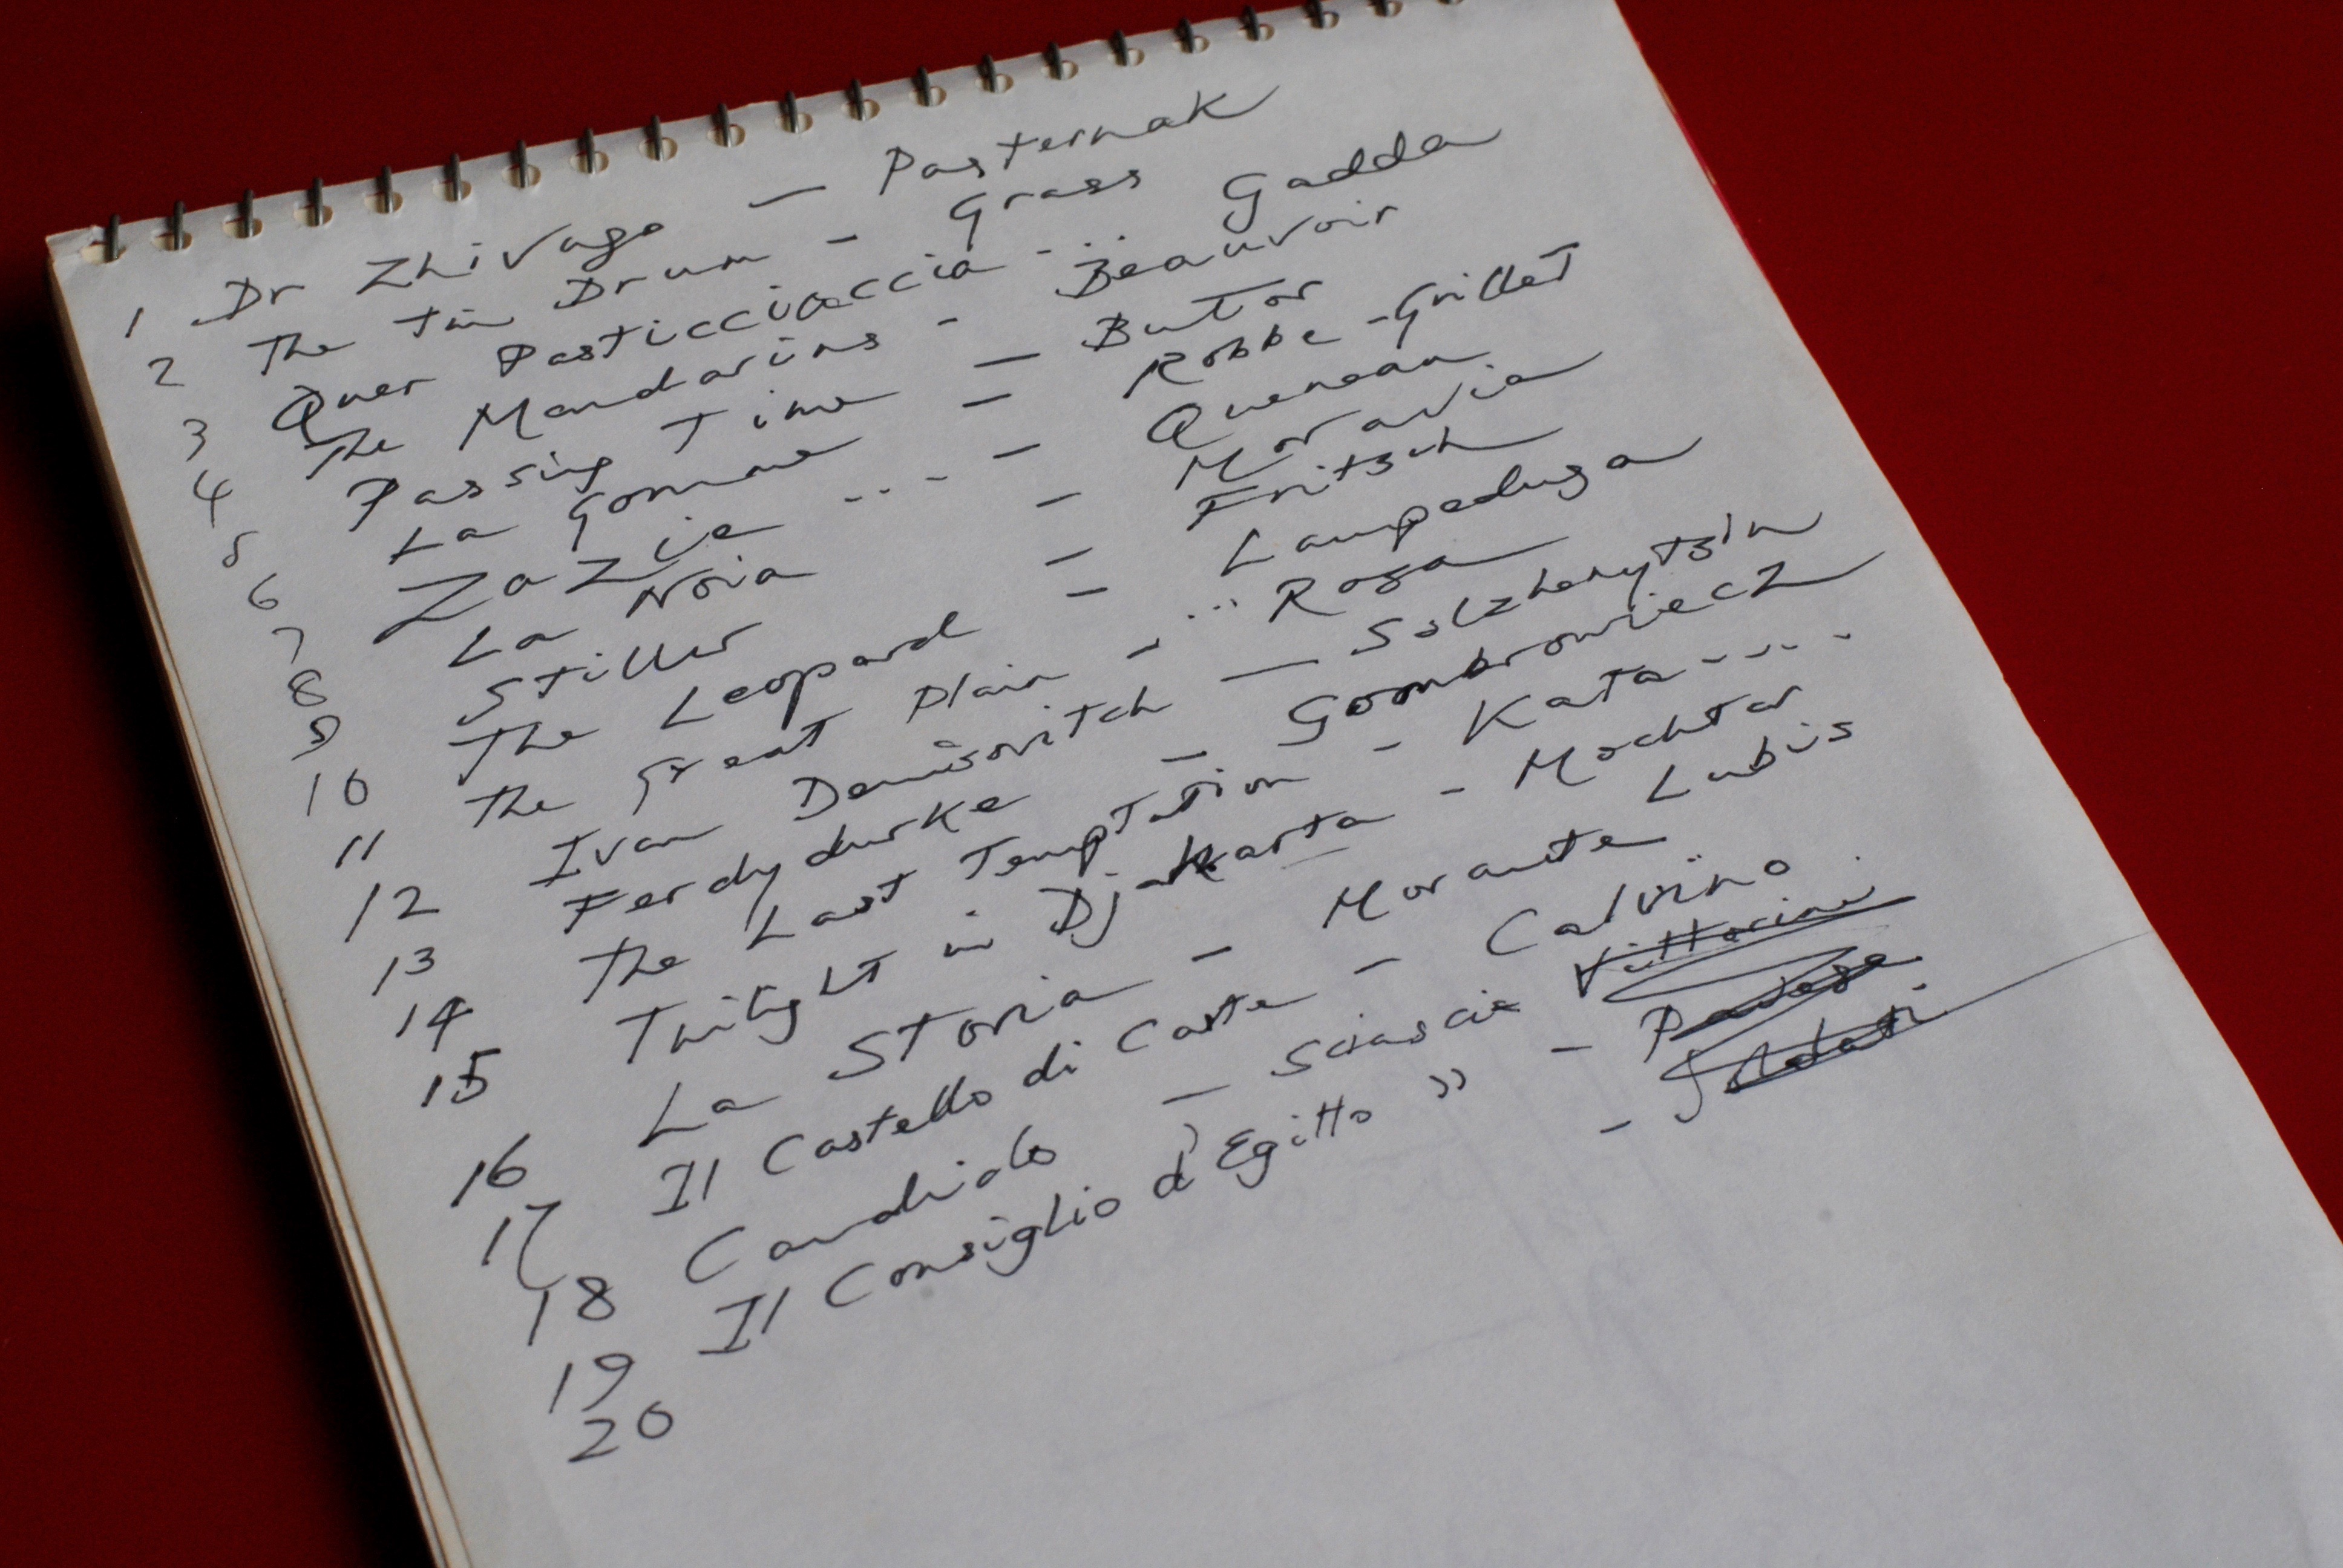 1 Dr Zhivago — Pasternak
2 The Tin Drum - Grass
3 Quer Pasticciaccia - .. Gadda
4 The Mandarins - Beauvoir
5 Passing Time — Butor
6 La Gomme — Robbe-Grillet
7 Zazie ... - Queneau
8 La Noia - Moravia
9 Stiller - Fritsch
10 The Leopard - Lampedusa
11 The Great Plain - ... Rosa
12 Ivan Denisovitch — Solzhenytsin
13 Ferdydurke - Gombrowiecz
14 The Last Temptation - Kata----
15 Twilight in Djakarta - Mochtar Lubis
16 La Storia - Morante
17 Il Castello di Caste - Calvino
18 Candido — Sciascia Vittorini
19 Il Consiglio d'Egitto " - Pavese
20 - Soldati